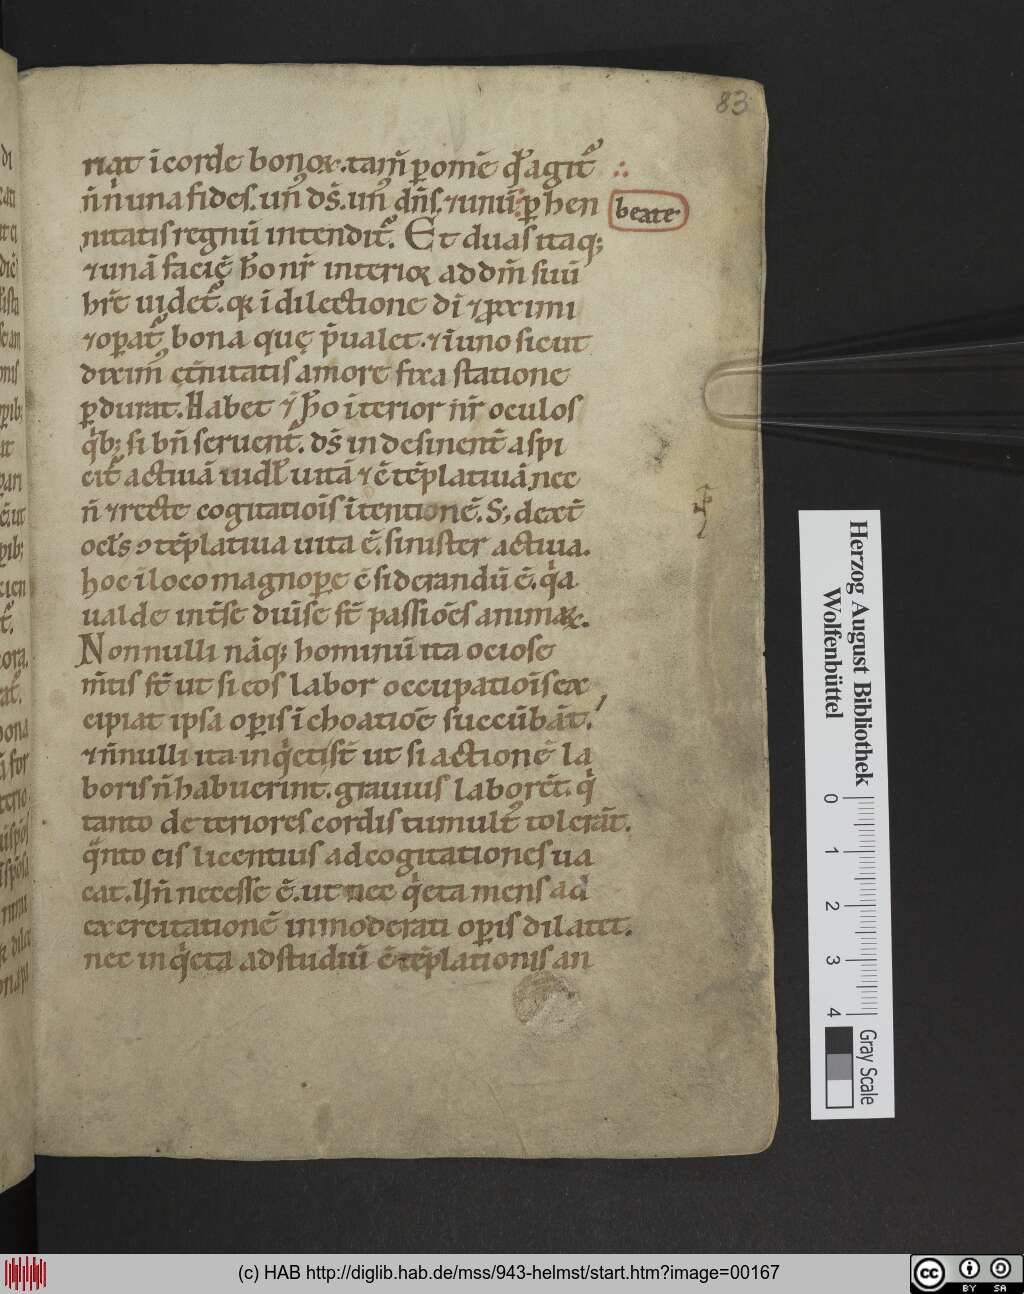 83
riat ī corde bonoꝝ. tam̄ ꝑ omē qᵈ agit᷑
n̄ nͥ una fides. un᷒ dꝰs̄. un᷒ dn̄s. ⁊ unū. ꝑhen
beate
nitatis regnū intendit᷑. Et duas itaq;
⁊ unā faciē h̄o nr̄ interior ad dm̄ suū
hr̄e uidet᷑. qꝛ ī dilectione dī ⁊ ꝓximi
⁊ oꝑat᷑ bona que p̄ualet. ⁊ ī uno sicut
dixim᷒ et̄nitatis amore fixa statione
ꝑdurat. Habet ⁊ h̄o īterior nr̄ oculos
qͥb; si bn̄ seruent᷑. ds̄ indesinent̄ aspi
cit᷑ actiuā uidꝉ uitā ⁊ ɔ̄tēplatiuā, nec
n̄ ⁊ recte cogitatiōis ītentionē. S; dext̄
ocꝉs ɔtēplatiua uita ē. sinister actiua.
hoc ī loco magnoꝑe ɔ̄siderandū ē. qͥa
ualde int̄ se duīse st̄ passiōes animaꝝ.
Nonnulli nāq; hominū ita ociose
m̄tis st̄ ut si eos labor occupatiōis ex
cipiat ipsa oꝑis īchoatiōe succūbāt.
⁊ n̄nulli ita inqͥeti st̄ ut si actionē la
boris n̄ habuerint. grauius laborēt. qͥ
tanto deteriores cordis tumult᷒ tolerāt.
qͣnto eis licentius ad cogitationes ua
cat. Un̄ necesse ē. ut nec qͥeta mens ad
exercitationē inmoderati oꝑis dilatet.
nec inqͥeta ad studiū ɔ̄tēplationis an
Herzog August Bibliothek
Wolfenbüttel
0 1 2 3 4
Gray Scale
(c) HAB http://diglib.hab.de/mss/943-helmst/start.htm?image=00167
cc BY SA